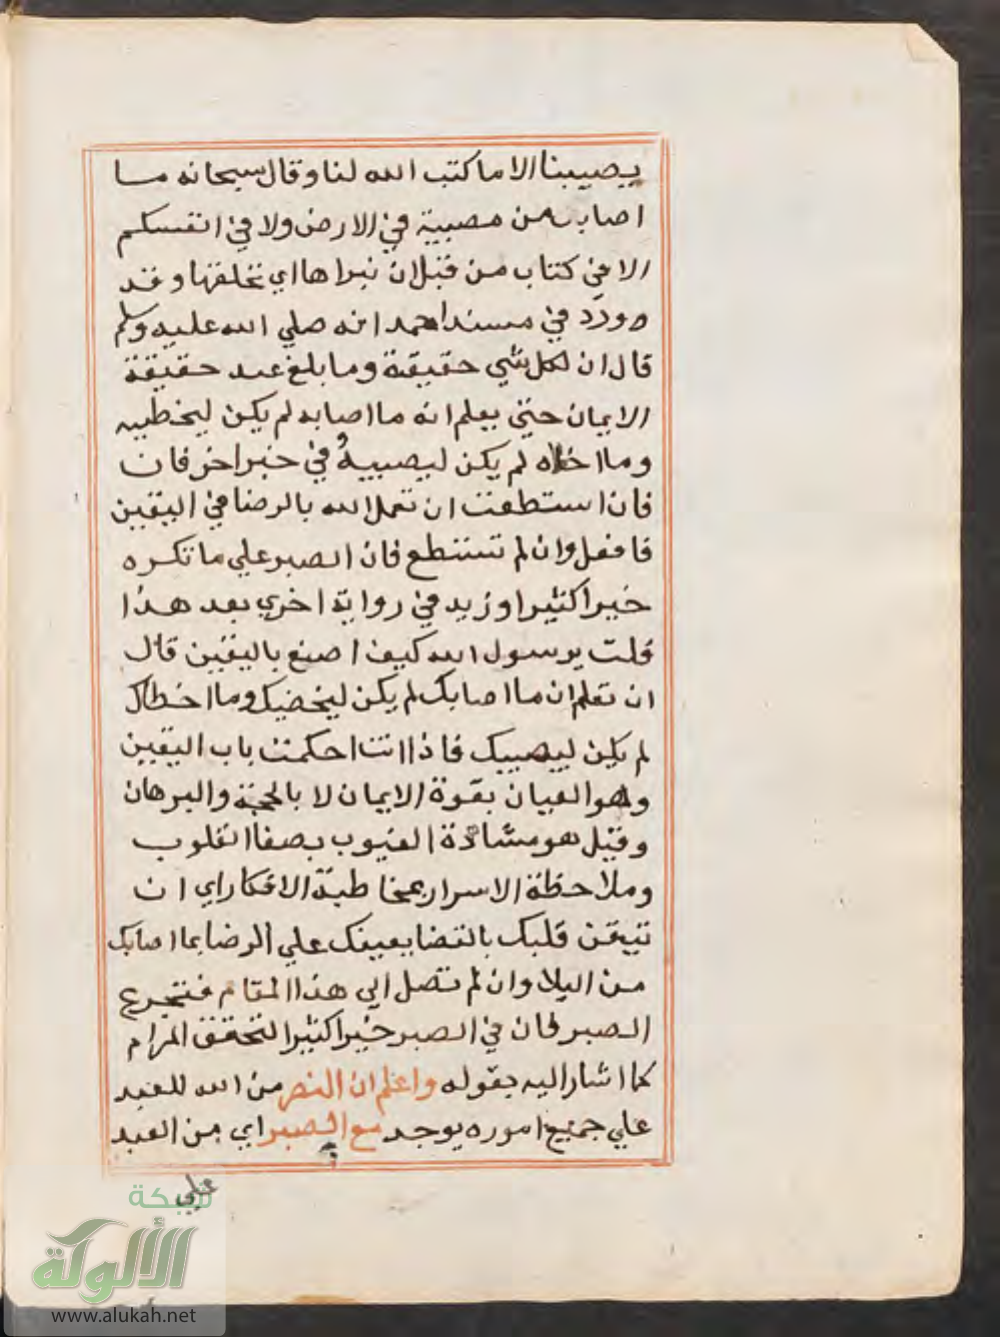 يصيبنا الا ما كتب الله لنا وقال سبحانه ما
اصاب من مصيبة في الارض ولا في انفسكم
الا في كتاب من قبل ان نبراها اي نخلقها وقد
ورد في مسند احمد انه صلي الله عليه وسلم
قال ان لكل شي حقيقة وما بلغ عبد حقيقة
الايمان حتي يعلم انه ما اصابه لم يكن ليخطيه
وما اخطاه لم يكن ليصيبه وفي خبر اخر فان
فان استطعت ان تعمل لله بالرضا في اليقين
فافعل وان لم تستطع فان الصبر علي ما تكره
خيرا كثيرا وزيد في رواية اخري بعد هذا
قلت يرسول الله كيف اصنع باليقين قال
ان تعلم ان ما اصابك لم يكن ليخضيك وما اخطاك
لم يكن ليصيبك فاذا انت احكمت باب اليقين
وهو العيان بقوة الايمان لا بالحجة والبرهان
وقيل هو مشادة الغيوب بصفا القلوب
وملاحظة الاسرار بمخاطبة الافكار اي ان
تيقن قلبك بالقضا يعينك علي الرضا بما اصابك
من البلا وان لم تصل الي هذا المقام فتجرع
الصبر فان في الصبر خيرا كثيرا لتحقق المرام
كما اشار اليه بقوله واعلم ان النصر من الله للعبد
علي جميع اموره يوجد مع الصبر اي من العبد
علي
شبكة
الألوكة
www.alukah.net